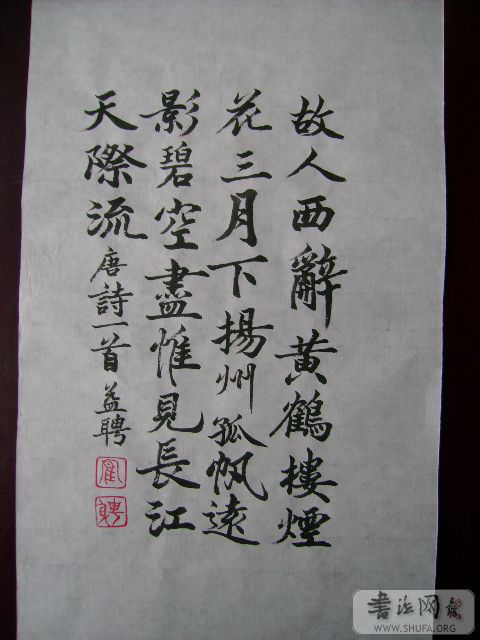 故人西辭黃鶴樓煙
花三月下揚州孤帆遠
影碧空盡惟見長江
天際流
唐詩一首益聘
書法网
WWW.SHUFA.ORG